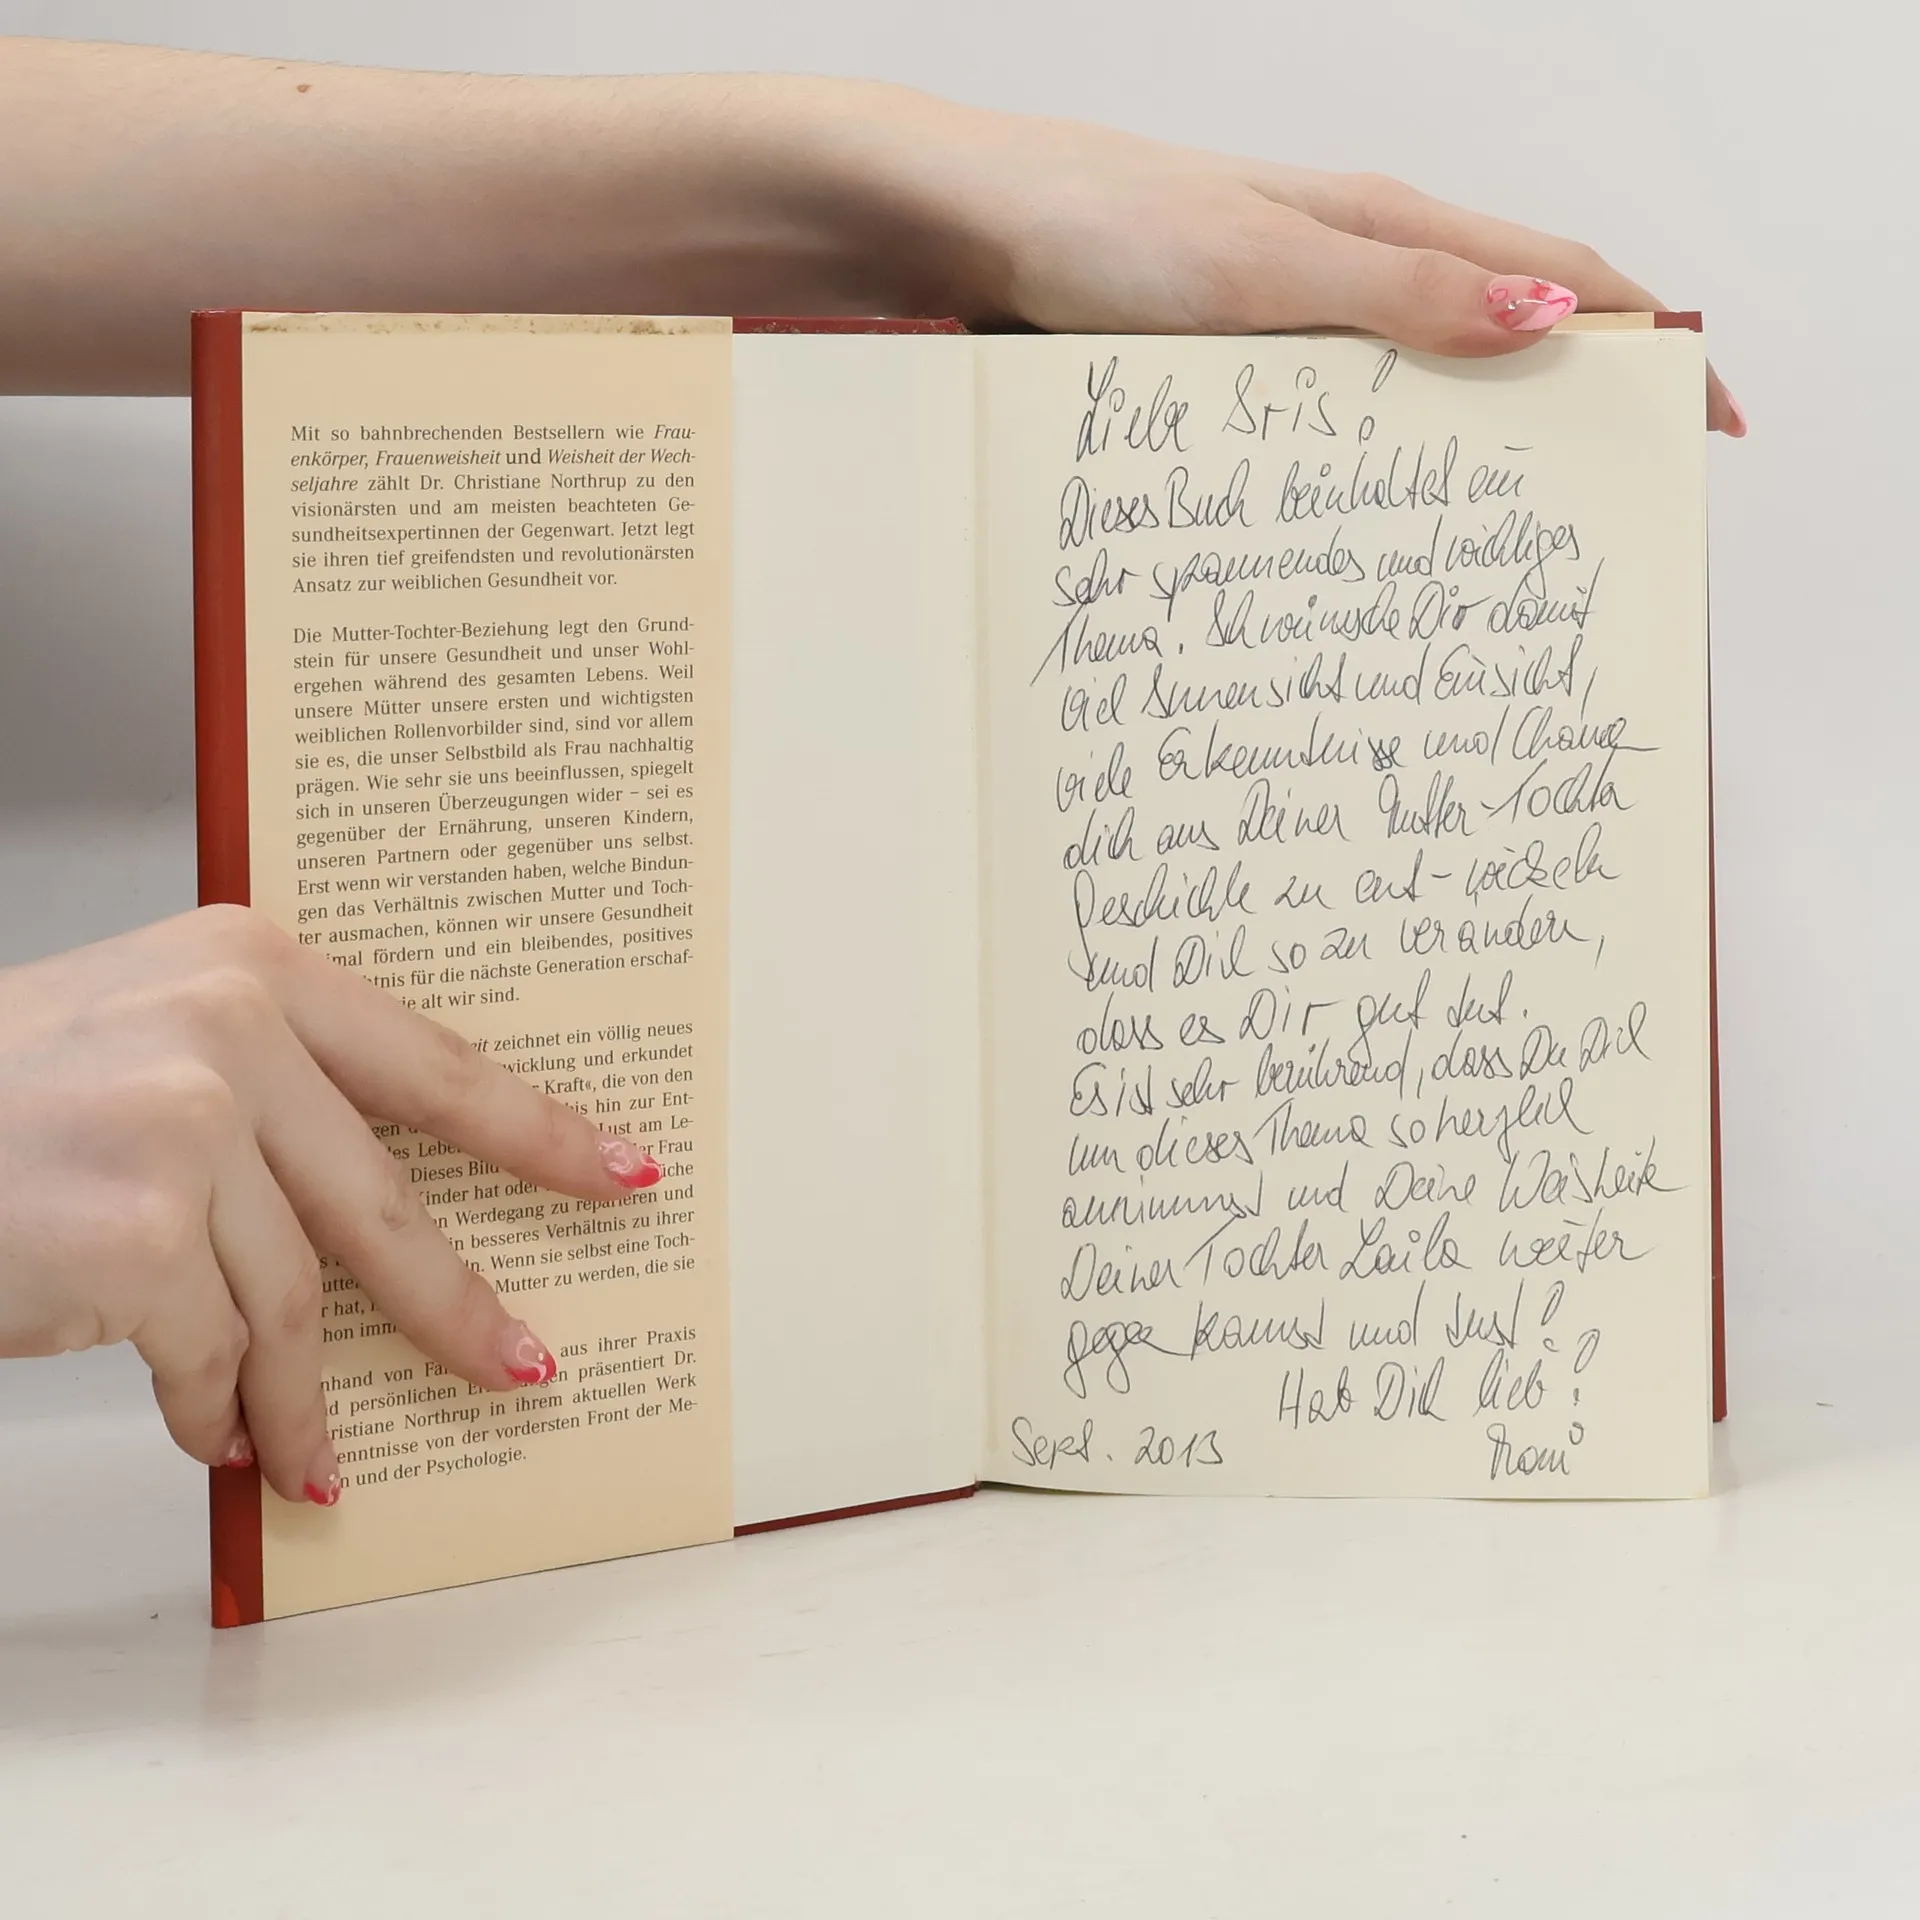 Mit so bahnbrechenden Bestsellern wie Frau-
enkörper, Frauenweisheit und Weisheit der Wech-
seljahre zählt Dr. Christiane Northrup zu den
visionärsten und am meisten beachteten Ge-
sundheitsexpertinnen der Gegenwart. Jetzt legt
sie ihren tief greifendsten und revolutionärsten
Ansatz zur weiblichen Gesundheit vor.
Die Mutter-Tochter-Beziehung legt den Grund-
stein für unsere Gesundheit und unser Wohl-
ergehen während des gesamten Lebens. Weil
unsere Mütter unsere ersten und wichtigsten
weiblichen Rollenvorbilder sind, sind vor allem
sie es, die unser Selbstbild als Frau nachhaltig
prägen. Wie sehr sie uns beeinflussen, spiegelt
sich in unseren Überzeugungen wider – sei es
gegenüber der Ernährung, unseren Kindern,
unseren Partnern oder gegenüber uns selbst.
Erst wenn wir verstanden haben, welche Bindun-
gen das Verhältnis zwischen Mutter und Toch-
ter ausmachen, können wir unsere Gesundheit
imal fördern und ein bleibendes, positives
htnis für die nächste Generation erschaf-
ie alt wir sind.
eit zeichnet ein völlig neues
wicklung und erkundet
Kraft«, die von den
bis hin zur Ent-
gen Lust am Le-
es Lebe er Frau
Dieses Bild üche
Kinder hat oder reparieren und
n Werdegang zu
in besseres Verhältnis zu ihrer
ln. Wenn sie selbst eine Toch-
utte Mutter zu werden, die sie
r hat,
hon imm
nhand von Fa aus ihrer Praxis
d persönlichen gen präsentiert Dr.
ristiane Northrup in ihrem aktuellen Werk
enntnisse von der vordersten Front der Me-
n und der Psychologie.
Liebe Iris!
Dieses Buch beinhaltet ein
sehr spannendes und wichtiges
Thema. Ich wünsche Dir damit
viel Innensicht und Einsicht,
viele Erkenntnisse und Chance
dich aus Deiner Mutter-Tochter
Geschichte zu ent-wickeln
und Dich so zu verändern,
dass es Dir gut tut.
Es ist sehr berührend, dass Du Dich
um dieses Thema so herzlich
annimmst und Deine Weisheit
Deiner Tochter Laila weiter
geben kannst und tust!
Hab Dich lieb!
Sept. 2013